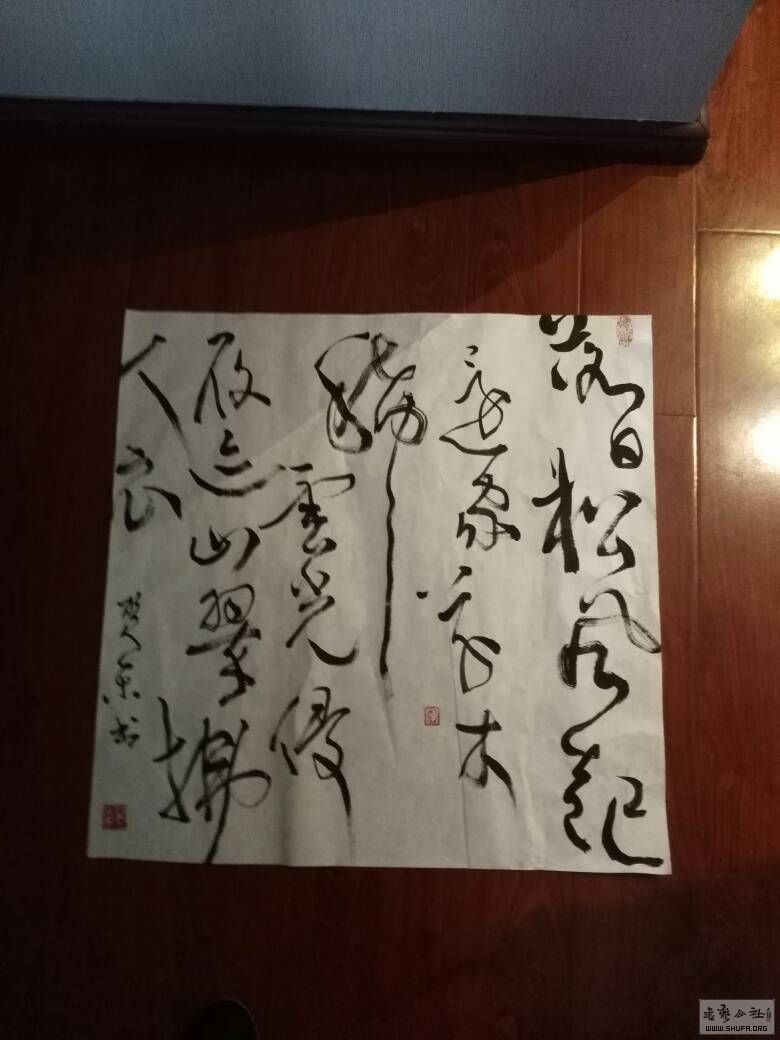 落日松风起
还家草木
稀云光侵
履迹山翠拂
人衣
书
书艺公社
WWW.SHUFA.ORG